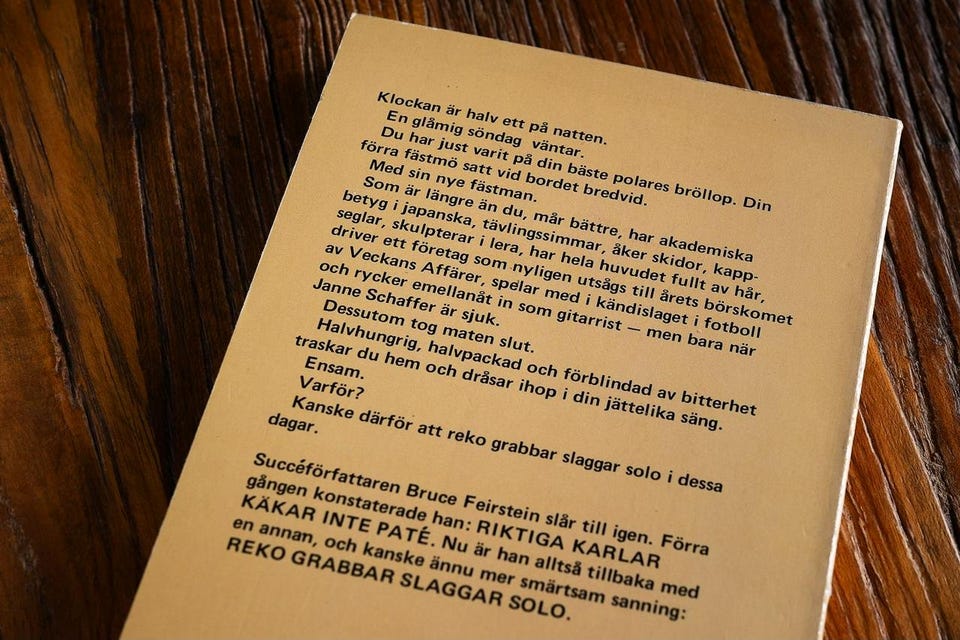 Klockan är halv ett på natten.
En glåmig söndag väntar.
Du har just varit på din bäste polares bröllop. Din
förra fästmö satt vid bordet bredvid.
Med sin nye fästman.
Som är längre än du, mår bättre, har akademiska
betyg i japanska, tävlingssimmar, åker skidor, kapp-
seglar, skulpterar i lera, har hela huvudet fullt av hår,
driver ett företag som nyligen utsågs till årets börskomet
av Veckans Affärer, spelar med i kändislaget i fotboll
och rycker emellanåt in som gitarrist — men bara när
Janne Schaffer är sjuk.
Dessutom tog maten slut.
Halvhungrig, halvpackad och förblindad av bitterhet
traskar du hem och dråsar ihop i din jättelika säng.
Ensam.
Varför?
Kanske därför att reko grabbar slaggar solo i dessa
dagar.
Succéförfattaren Bruce Feirstein slår till igen. Förra
gången konstaterade han: RIKTIGA KARLAR
KÄKAR INTE PATÉ. Nu är han alltså tillbaka med
en annan, och kanske ännu mer smärtsam sanning:
REKO GRABBAR SLAGGAR SOLO.